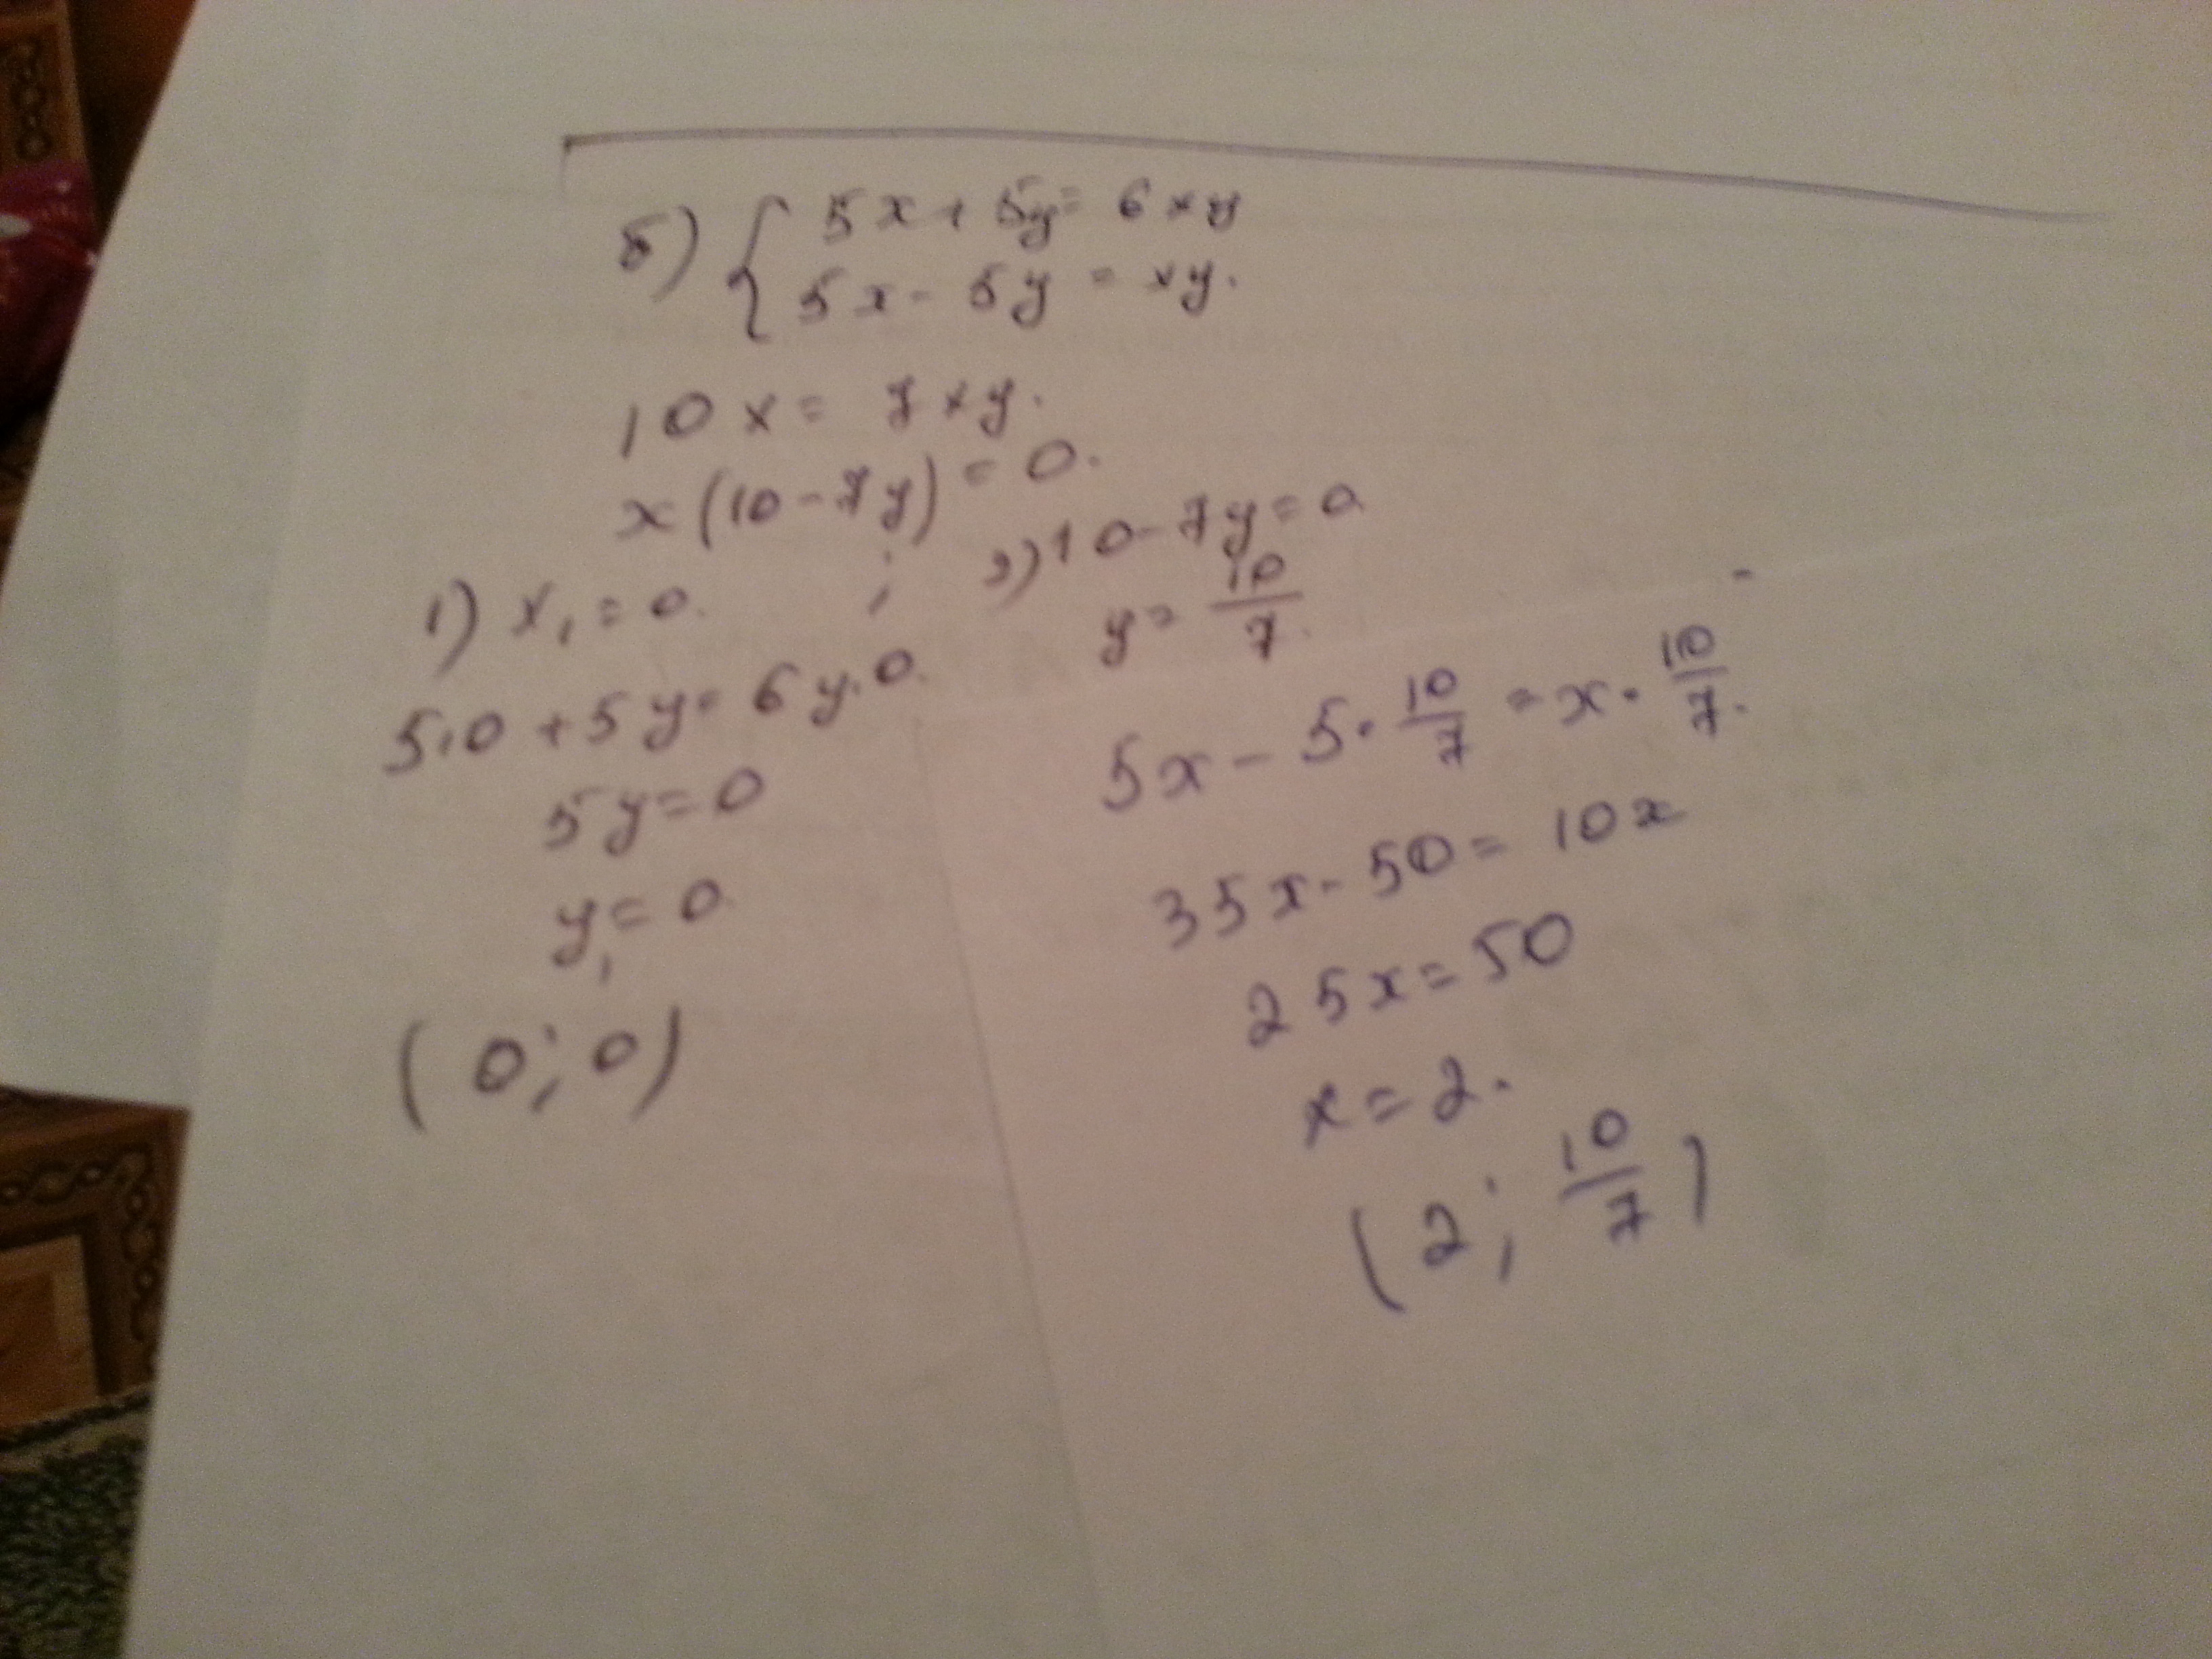 5) { 5x + 5y = 6xy
5x - 5y = xy.
10x = 7xy.
x(10 - 7y) = 0.
1) x₁ = 0. ; 2) 10 - 7y = 0
y = 10/7.
5·0 + 5y = 6y·0.
5y = 0
y₁ = 0
(0; 0)
5x - 5·10/7 = x·10/7.
35x - 50 = 10x
25x = 50
x = 2.
(2; 10/7)